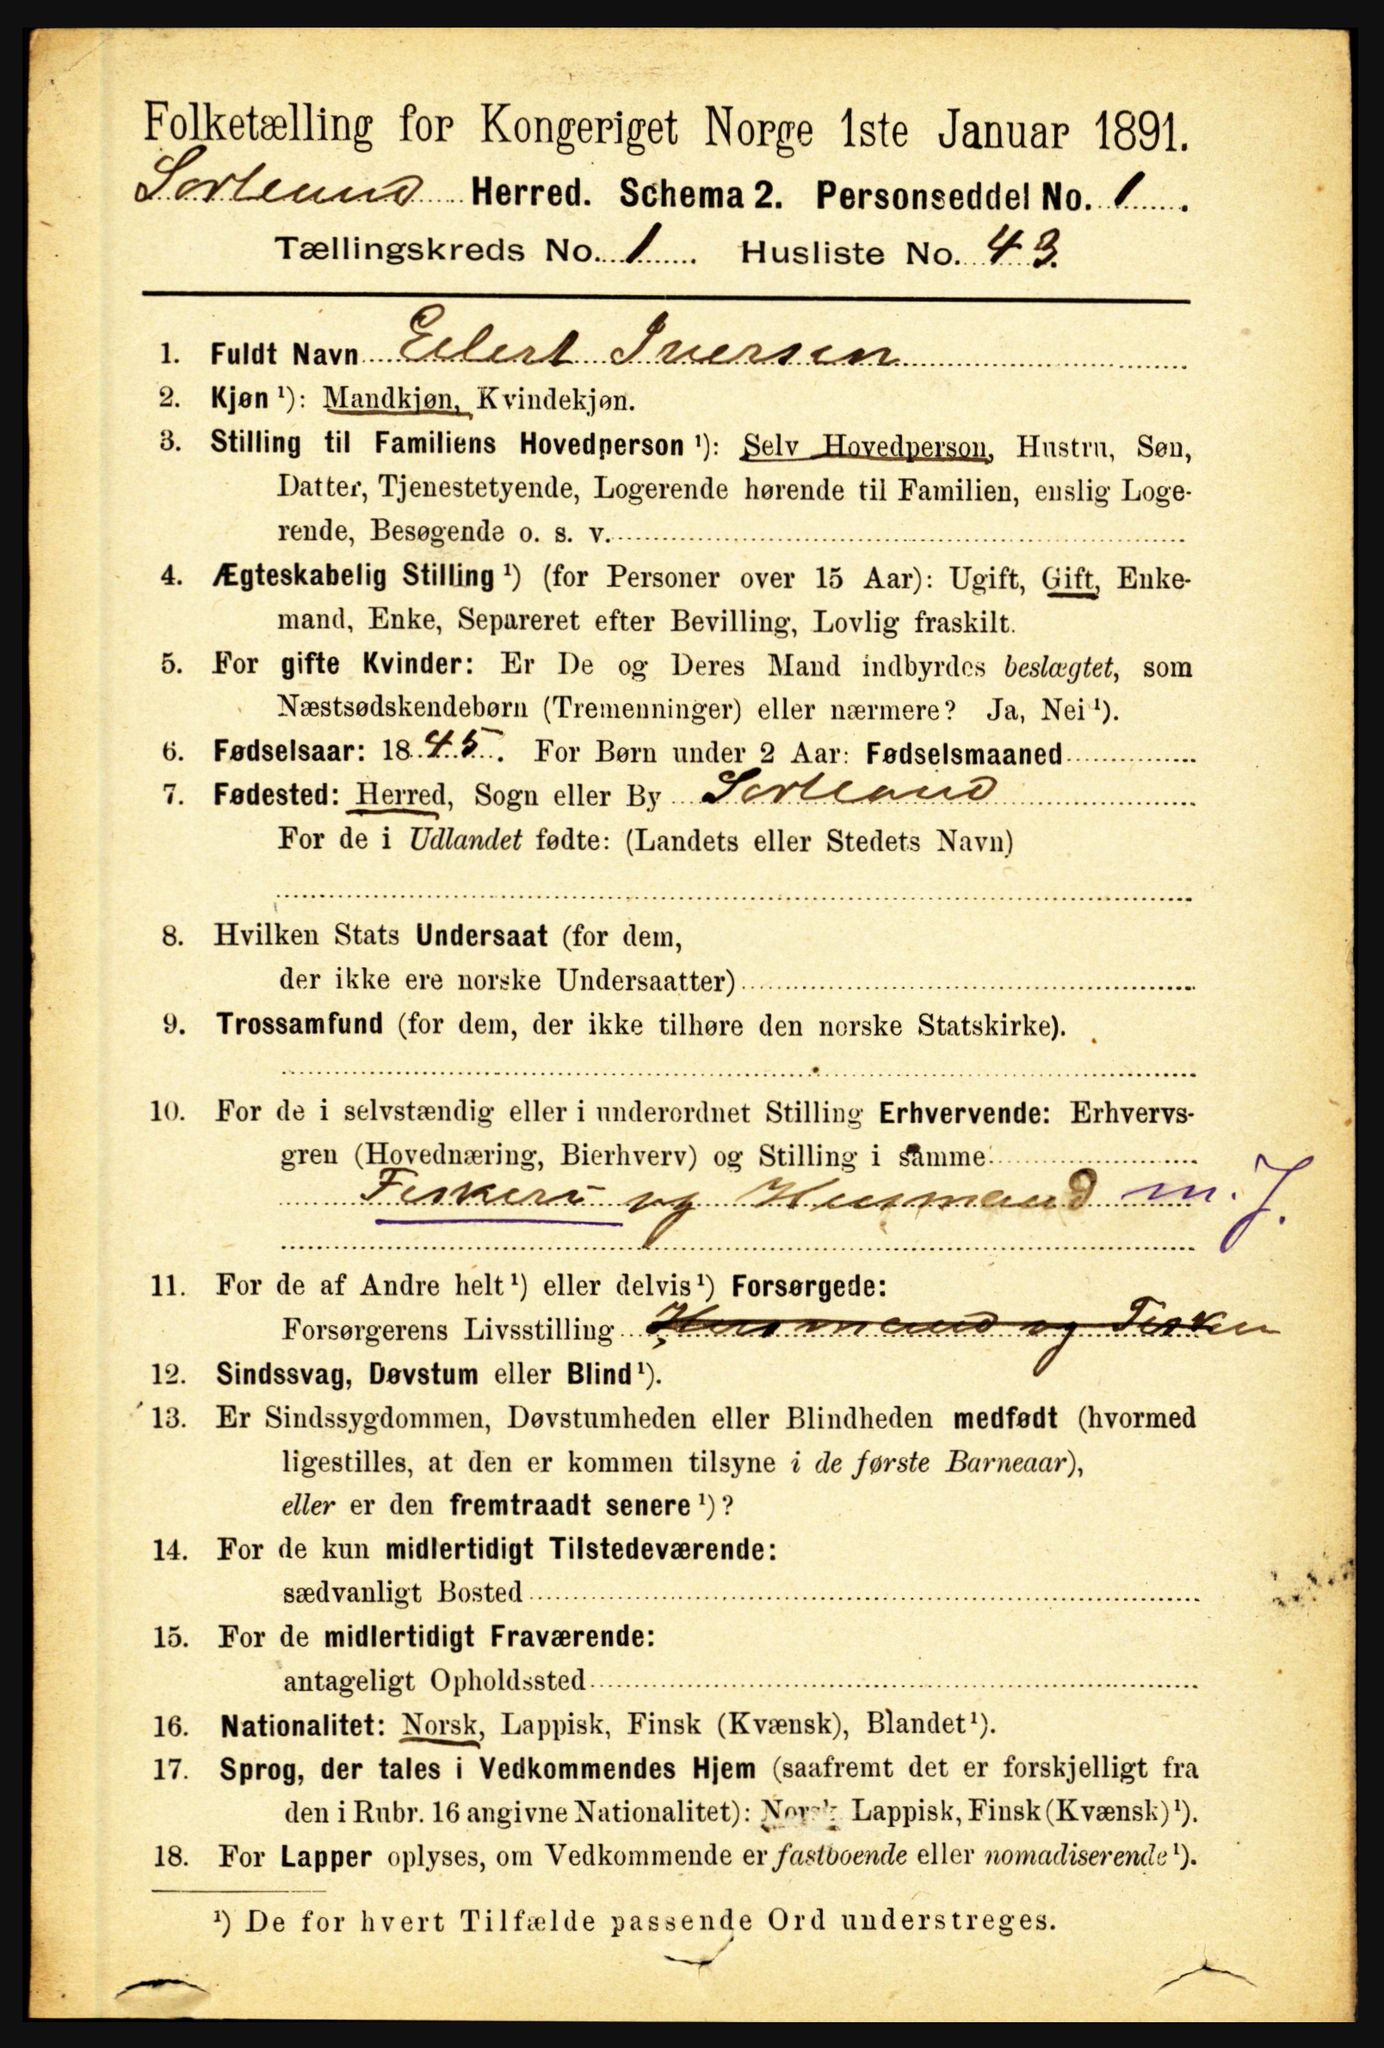 Folketælling for Kongeriget Norge 1ste Januar 1891.
Sortland Herred. Schema 2. Personseddel No. 1.
Tællingskreds No. 1. Husliste No. 43.
1. Fuldt Navn Eilert Iversen
2. Kjøn ¹): Mandkjøn, Kvindekjøn.
3. Stilling til Familiens Hovedperson ¹): Selv Hovedperson, Hustru, Søn,
Datter, Tjenestetyende, Logerende hørende til Familien, enslig Loge-
rende, Besøgende o. s. v.
4. Ægteskabelig Stilling ¹) (for Personer over 15 Aar): Ugift, Gift, Enke-
mand, Enke, Separeret efter Bevilling, Lovlig fraskilt.
5. For gifte Kvinder: Er De og Deres Mand indbyrdes beslægtet, som
Næstsødskendebørn (Tremenninger) eller nærmere? Ja, Nei ¹).
6. Fødselsaar: 1845. For Børn under 2 Aar: Fødselsmaaned
7. Fødested: Herred, Sogn eller By Sortland
For de i Udlandet fødte: (Landets eller Stedets Navn)
8. Hvilken Stats Undersaat (for dem,
der ikke ere norske Undersaatter)
9. Trossamfund (for dem, der ikke tilhøre den norske Statskirke).
10. For de i selvstændig eller i underordnet Stilling Erhvervende: Erhvervs-
gren (Hovednæring, Bierhverv) og Stilling i samme
Fiskeri og Husmand m. J.
11. For de af Andre helt ¹) eller delvis ¹) Forsørgede:
Forsørgerens Livsstilling Husmand og Fisker
12. Sindssvag, Døvstum eller Blind ¹).
13. Er Sindssygdommen, Døvstumheden eller Blindheden medfødt (hvormed
ligestilles, at den er kommen tilsyne i de første Barneaar),
eller er den fremtraadt senere ¹)?
14. For de kun midlertidigt Tilstedeværende:
sædvanligt Bosted
15. For de midlertidigt Fraværende:
antageligt Opholdssted
16. Nationalitet: Norsk, Lappisk, Finsk (Kvænsk), Blandet ¹).
17. Sprog, der tales i Vedkommendes Hjem (saafremt det er forskjelligt fra
den i Rubr. 16 angivne Nationalitet): Norsk Lappisk, Finsk (Kvænsk) ¹).
18. For Lapper oplyses, om Vedkommende er fastboende eller nomadiserende ¹).
¹) De for hvert Tilfælde passende Ord understreges.